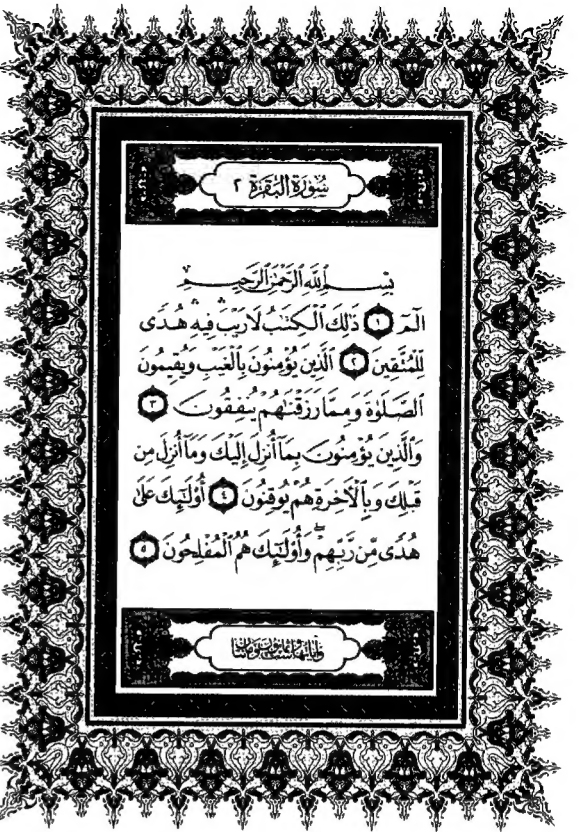 سُورَةُ البَقَرَةِ ٢
بِسْمِ ٱللَّهِ ٱلرَّحْمَٰنِ ٱلرَّحِيمِ
الٓمٓ ١ ذَٰلِكَ ٱلْكِتَٰبُ لَا رَيْبَ ۛ فِيهِ ۛ هُدًى
لِّلْمُتَّقِينَ ٢ ٱلَّذِينَ يُؤْمِنُونَ بِٱلْغَيْبِ وَيُقِيمُونَ
ٱلصَّلَوٰةَ وَمِمَّا رَزَقْنَٰهُمْ يُنفِقُونَ ٣
وَٱلَّذِينَ يُؤْمِنُونَ بِمَآ أُنزِلَ إِلَيْكَ وَمَآ أُنزِلَ مِن
قَبْلِكَ وَبِٱلْأَخِرَةِ هُمْ يُوقِنُونَ ٤ أُو۟لَٰٓئِكَ عَلَىٰ
هُدًى مِّن رَّبِّهِمْ ۖ وَأُو۟لَٰٓئِكَ هُمُ ٱلْمُفْلِحُونَ ٥
وآياتها ست وثمانون ومائتان